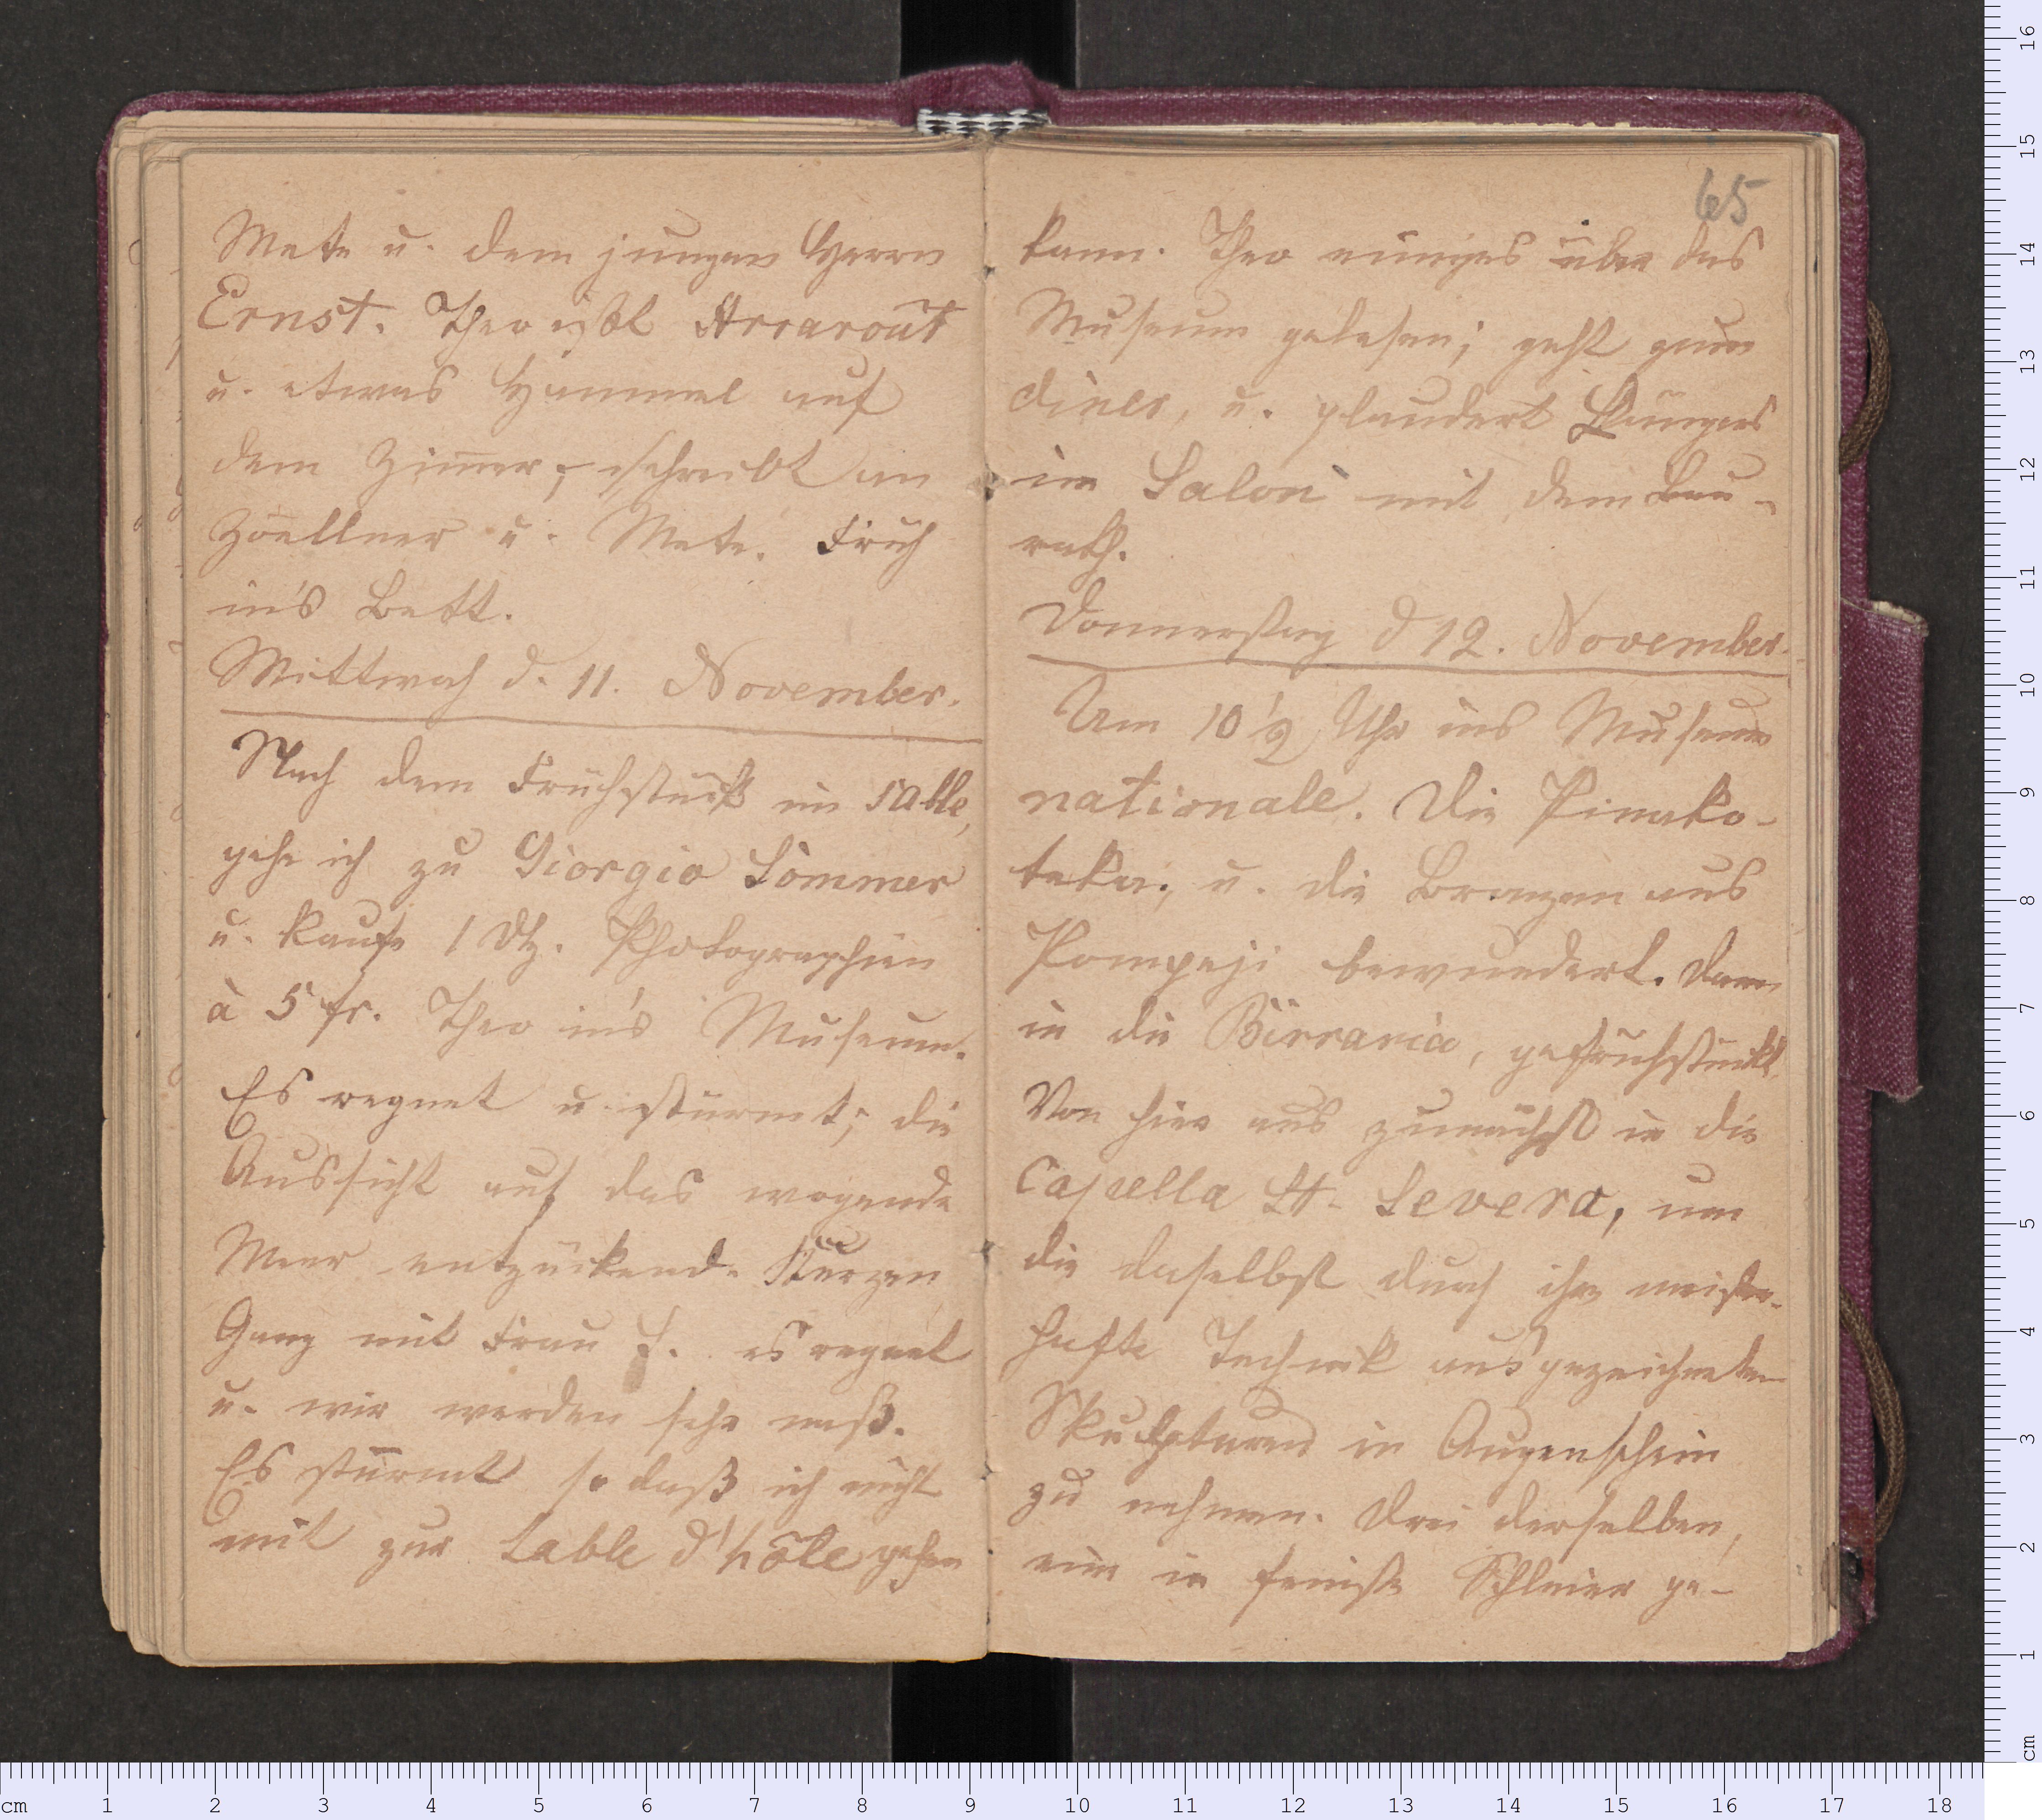 Mete u. dem jungen Herrn
Ernst. Theo ißt Arrarout
u. etwas Hammel auf
dem Zimmer; schreibt an
Zoellner u. Mete. Früh
in's Bett.
Mittwoch d. 11. November.
Nach dem Frühstück im salle,
gehe ich zu Giorgio Sommer
u. kaufe 1 Dtz. Photographien
à 5 fr. Theo in's Museum.
Es regnet u. stürmt; die
Aussicht auf das wogende
Meer entzückend. Kurzen
Gang mit Frau S. es regnet
u. wir werden sehr naß.
Es stürmt so daß ich nicht
mit zur table d'hôte gehen
65
kann. Theo einiges über das
Museum gelesen; geht zum
diner, u. plaudert
im Salon mit dem Bau-
rath.
Donnerstag d 12. November.
Um 10 1/2 Uhr ins Museum
nationale. Die Pinako-
teka, u. die Bronzen aus
Pompeji bewundert. Dann
in die Birraria, gefrühstückt.
Von hier aus zunächst in die
Capella St. Severo, um
die daselbst durch ihre meister-
hafte Technik ausgezeichneten
Skulpturen in Augenschein
zu nehmen. Drei derselben,
eine in feinste Schleier ge-